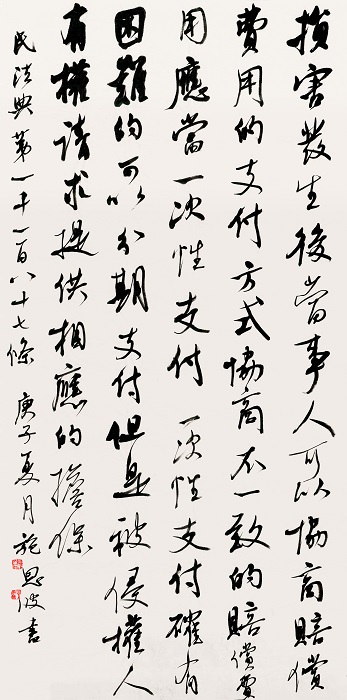 損害發生後當事人可以協商賠償
費用的支付方式協商不一致的賠償費
用應當一次性支付一次性支付確有
困難的可以分期支付但是被侵權人
有權請求提供相應的擔保
民法典第一千一百八十七條 庚子夏月施恩波書